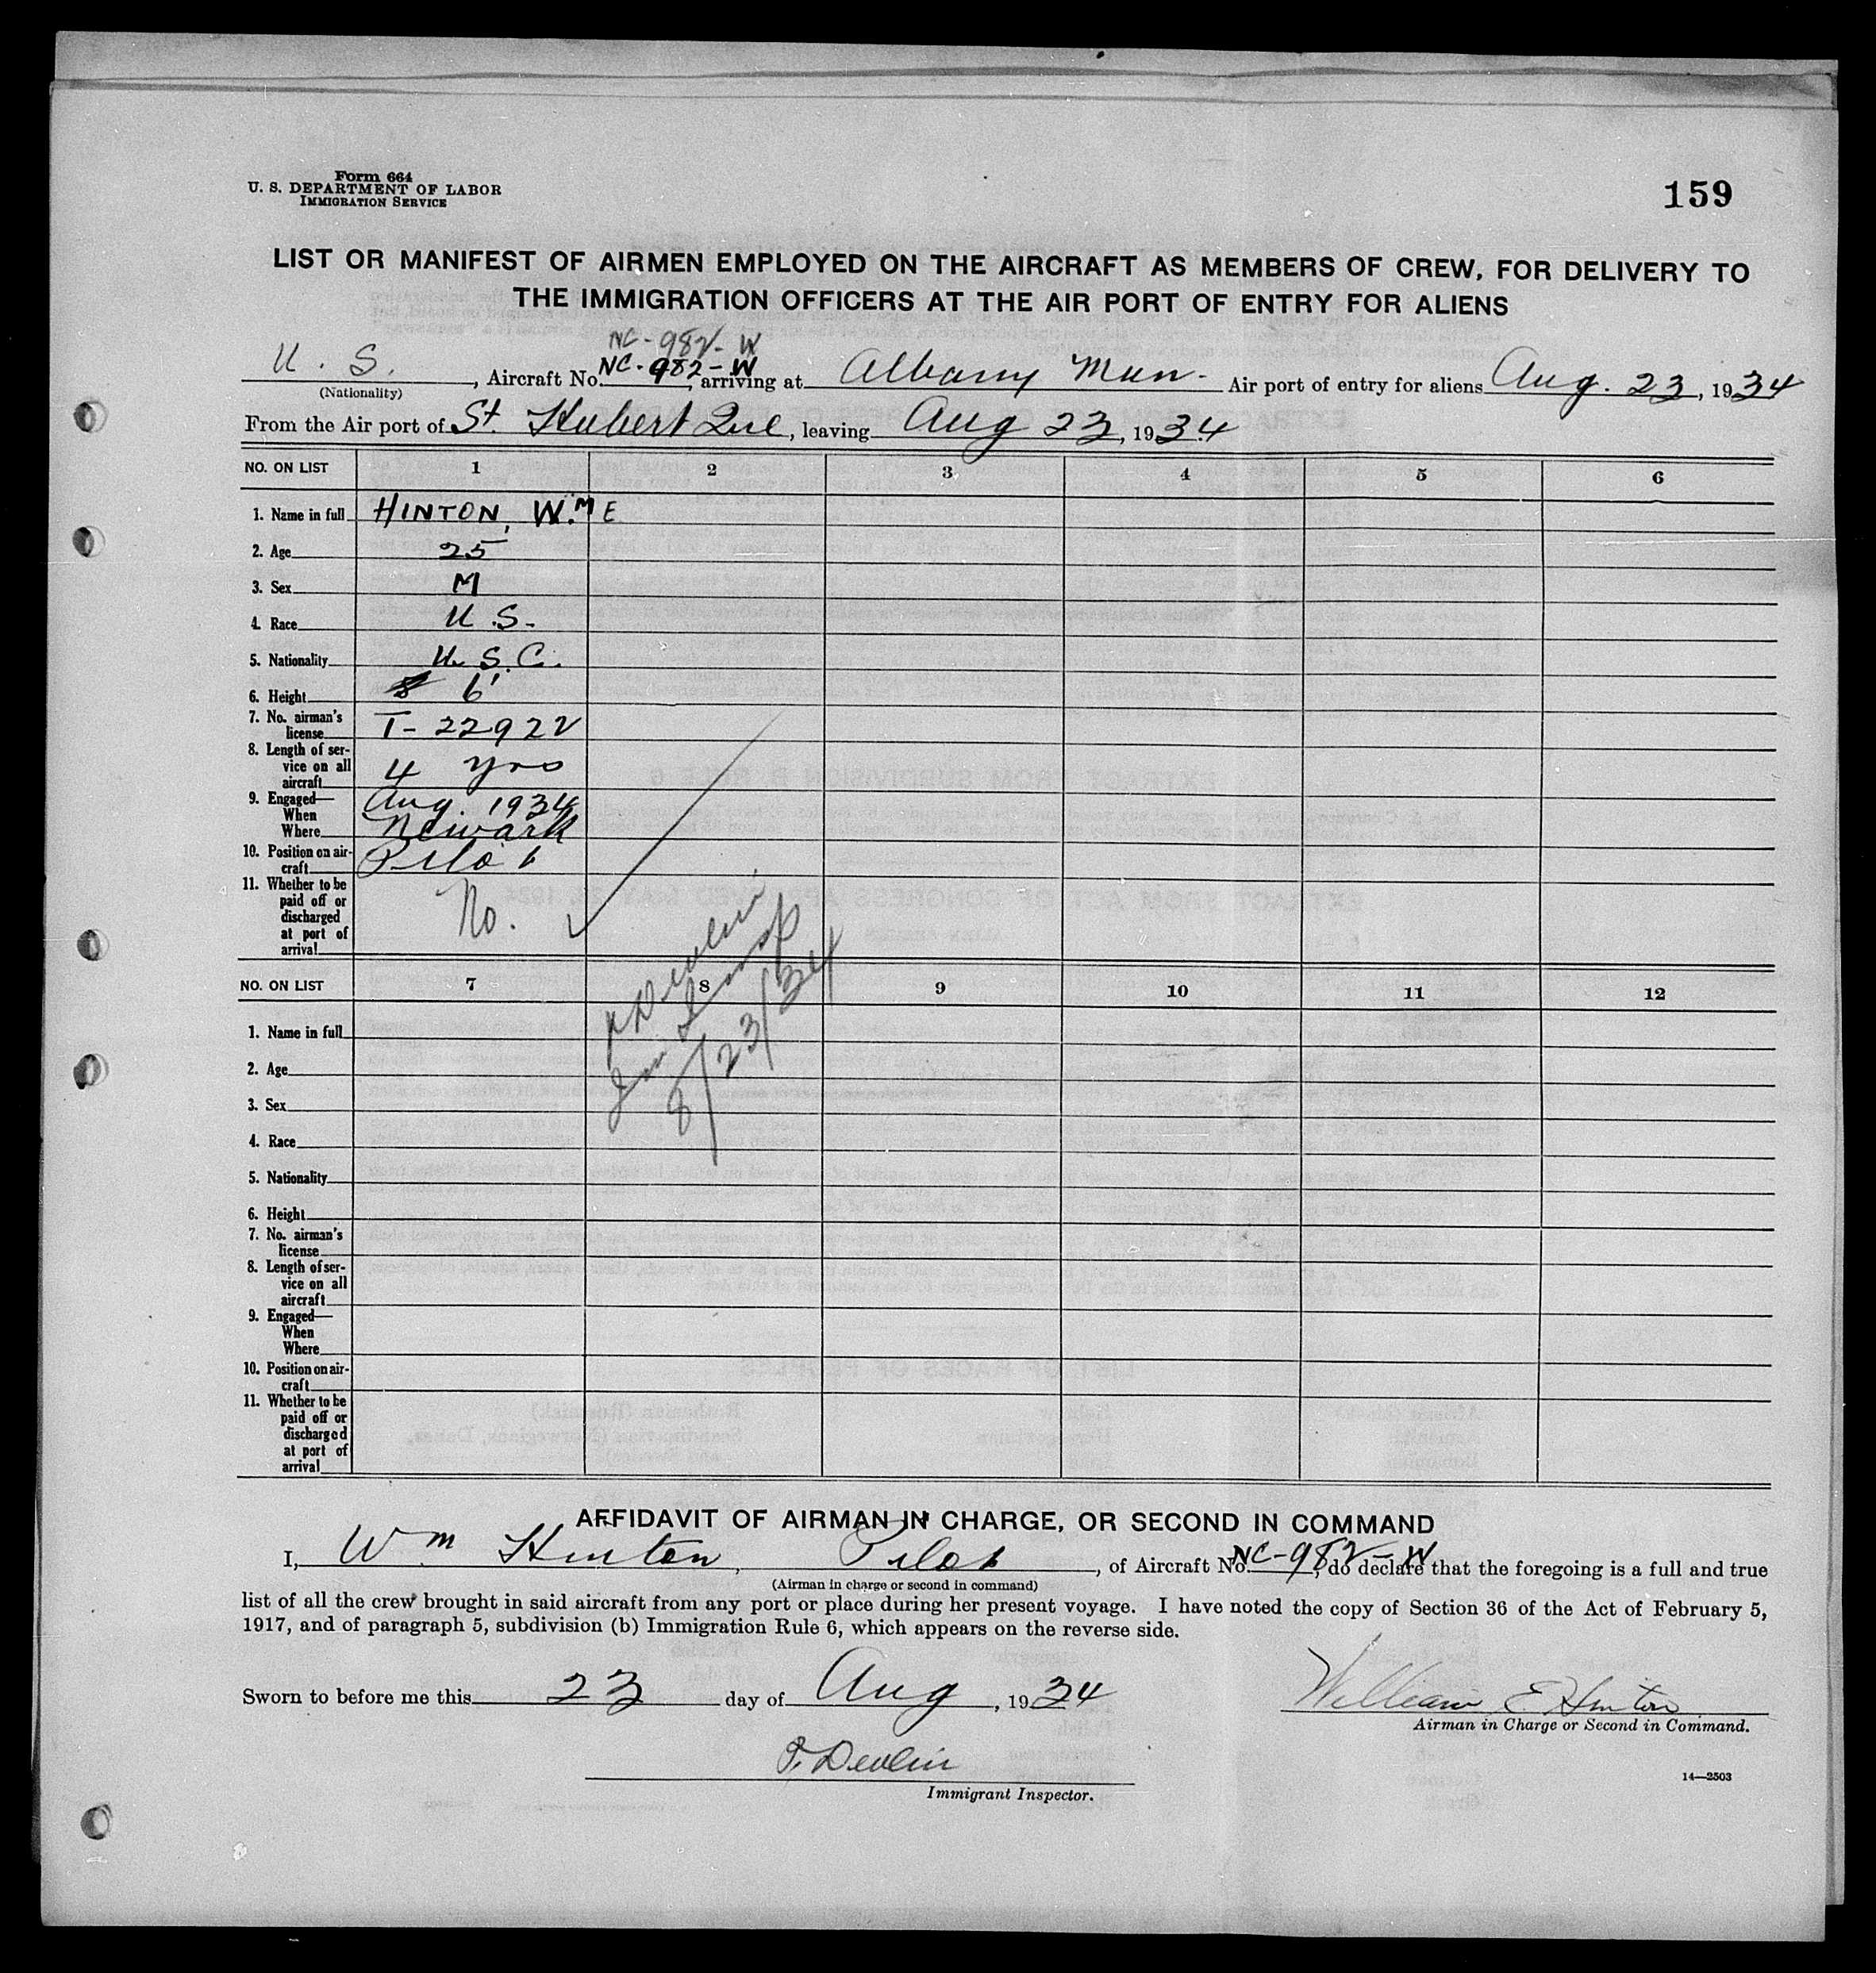 Form 664
U. S. DEPARTMENT OF LABOR
IMMIGRATION SERVICE
159
LIST OR MANIFEST OF AIRMEN EMPLOYED ON THE AIRCRAFT AS MEMBERS OF CREW, FOR DELIVERY TO
THE IMMIGRATION OFFICERS AT THE AIR PORT OF ENTRY FOR ALIENS
NC-982-W
U. S., Aircraft No. NC-982-W, arriving at Albany Mun- Air port of entry for aliens Aug. 23, 1934
(Nationality)
From the Air port of St. Hubert Que, leaving Aug 23, 1934
NO. ON LIST 1 2 3 4 5 6
1. Name in full HINTON, Wm E
2. Age 25
3. Sex M
4. Race U.S.
5. Nationality U.S.C.
6. Height 6'
7. No. airman's
license T-22922
8. Length of ser-
vice on all
aircraft 4 yrs
9. Engaged—
When Aug. 1934
Where Newark
10. Position on air-
craft Pilot
11. Whether to be
paid off or
discharged
at port of
arrival No.
P Devlin
Imm. Insp
8/23/34
NO. ON LIST 7 8 9 10 11 12
1. Name in full
2. Age
3. Sex
4. Race
5. Nationality
6. Height
7. No. airman's
license
8. Length of ser-
vice on all
aircraft
9. Engaged—
When
Where
10. Position on air-
craft
11. Whether to be
paid off or
discharged
at port of
arrival
AFFIDAVIT OF AIRMAN IN CHARGE, OR SECOND IN COMMAND
I, Wm Hinton, Pilot, of Aircraft No. NC-982-W, do declare that the foregoing is a full and true
(Airman in charge or second in command)
list of all the crew brought in said aircraft from any port or place during her present voyage. I have noted the copy of Section 36 of the Act of February 5,
1917, and of paragraph 5, subdivision (b) Immigration Rule 6, which appears on the reverse side.
Sworn to before me this 23 day of Aug, 1934
William E Hinton
Airman in Charge or Second in Command.
P. Devlin
Immigrant Inspector.
14—2503